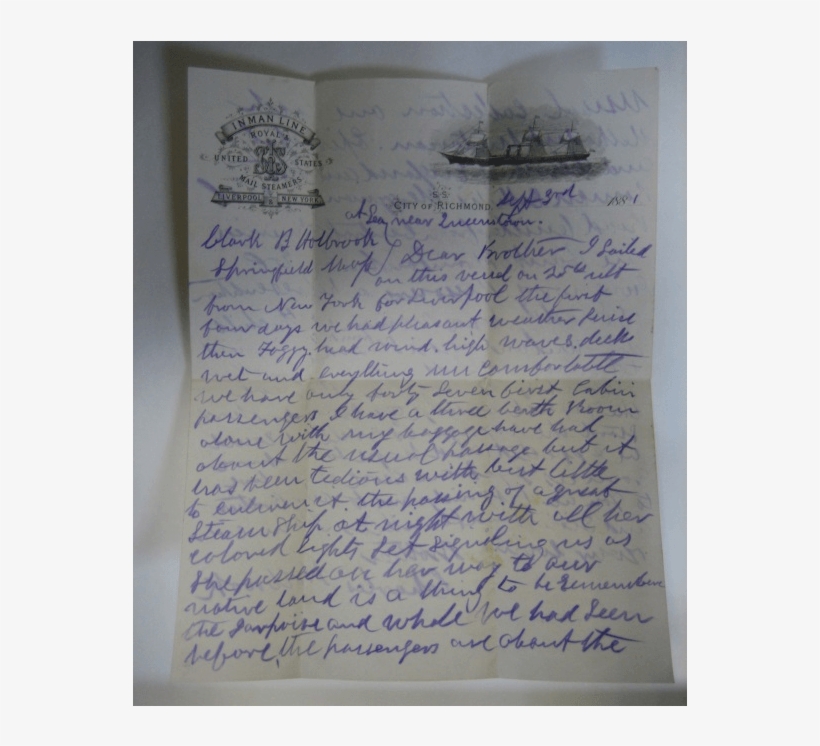 INMAN LINE
ROYAL &
UNITED STATES
MAIL STEAMERS
LIVERPOOL NEW YORK
S.S.
CITY OF RICHMOND, Sept 3rd 1881
at Sea near Queenstown.
Clark B Holbrook
Springfield Dear Brother I Sailed
on this vessel on 25th ult
from New York for Liverpool the first
four days we had pleasant weather Since
then Foggy. head wind. high waves. deck
wet and everything uncomfortable
we have only forty Seven first Cabin
passengers I have a three berth Room
alone with my baggage have had
about the usual passage but it
has been tedious with but little
to enliven it. the passing of a great
Steam Ship at night with all her
colored lights Set Signaling us as
She passed on her way to our
native land is a thing to be remembered
the porpoise and whale we had Seen
before, the passengers are about the